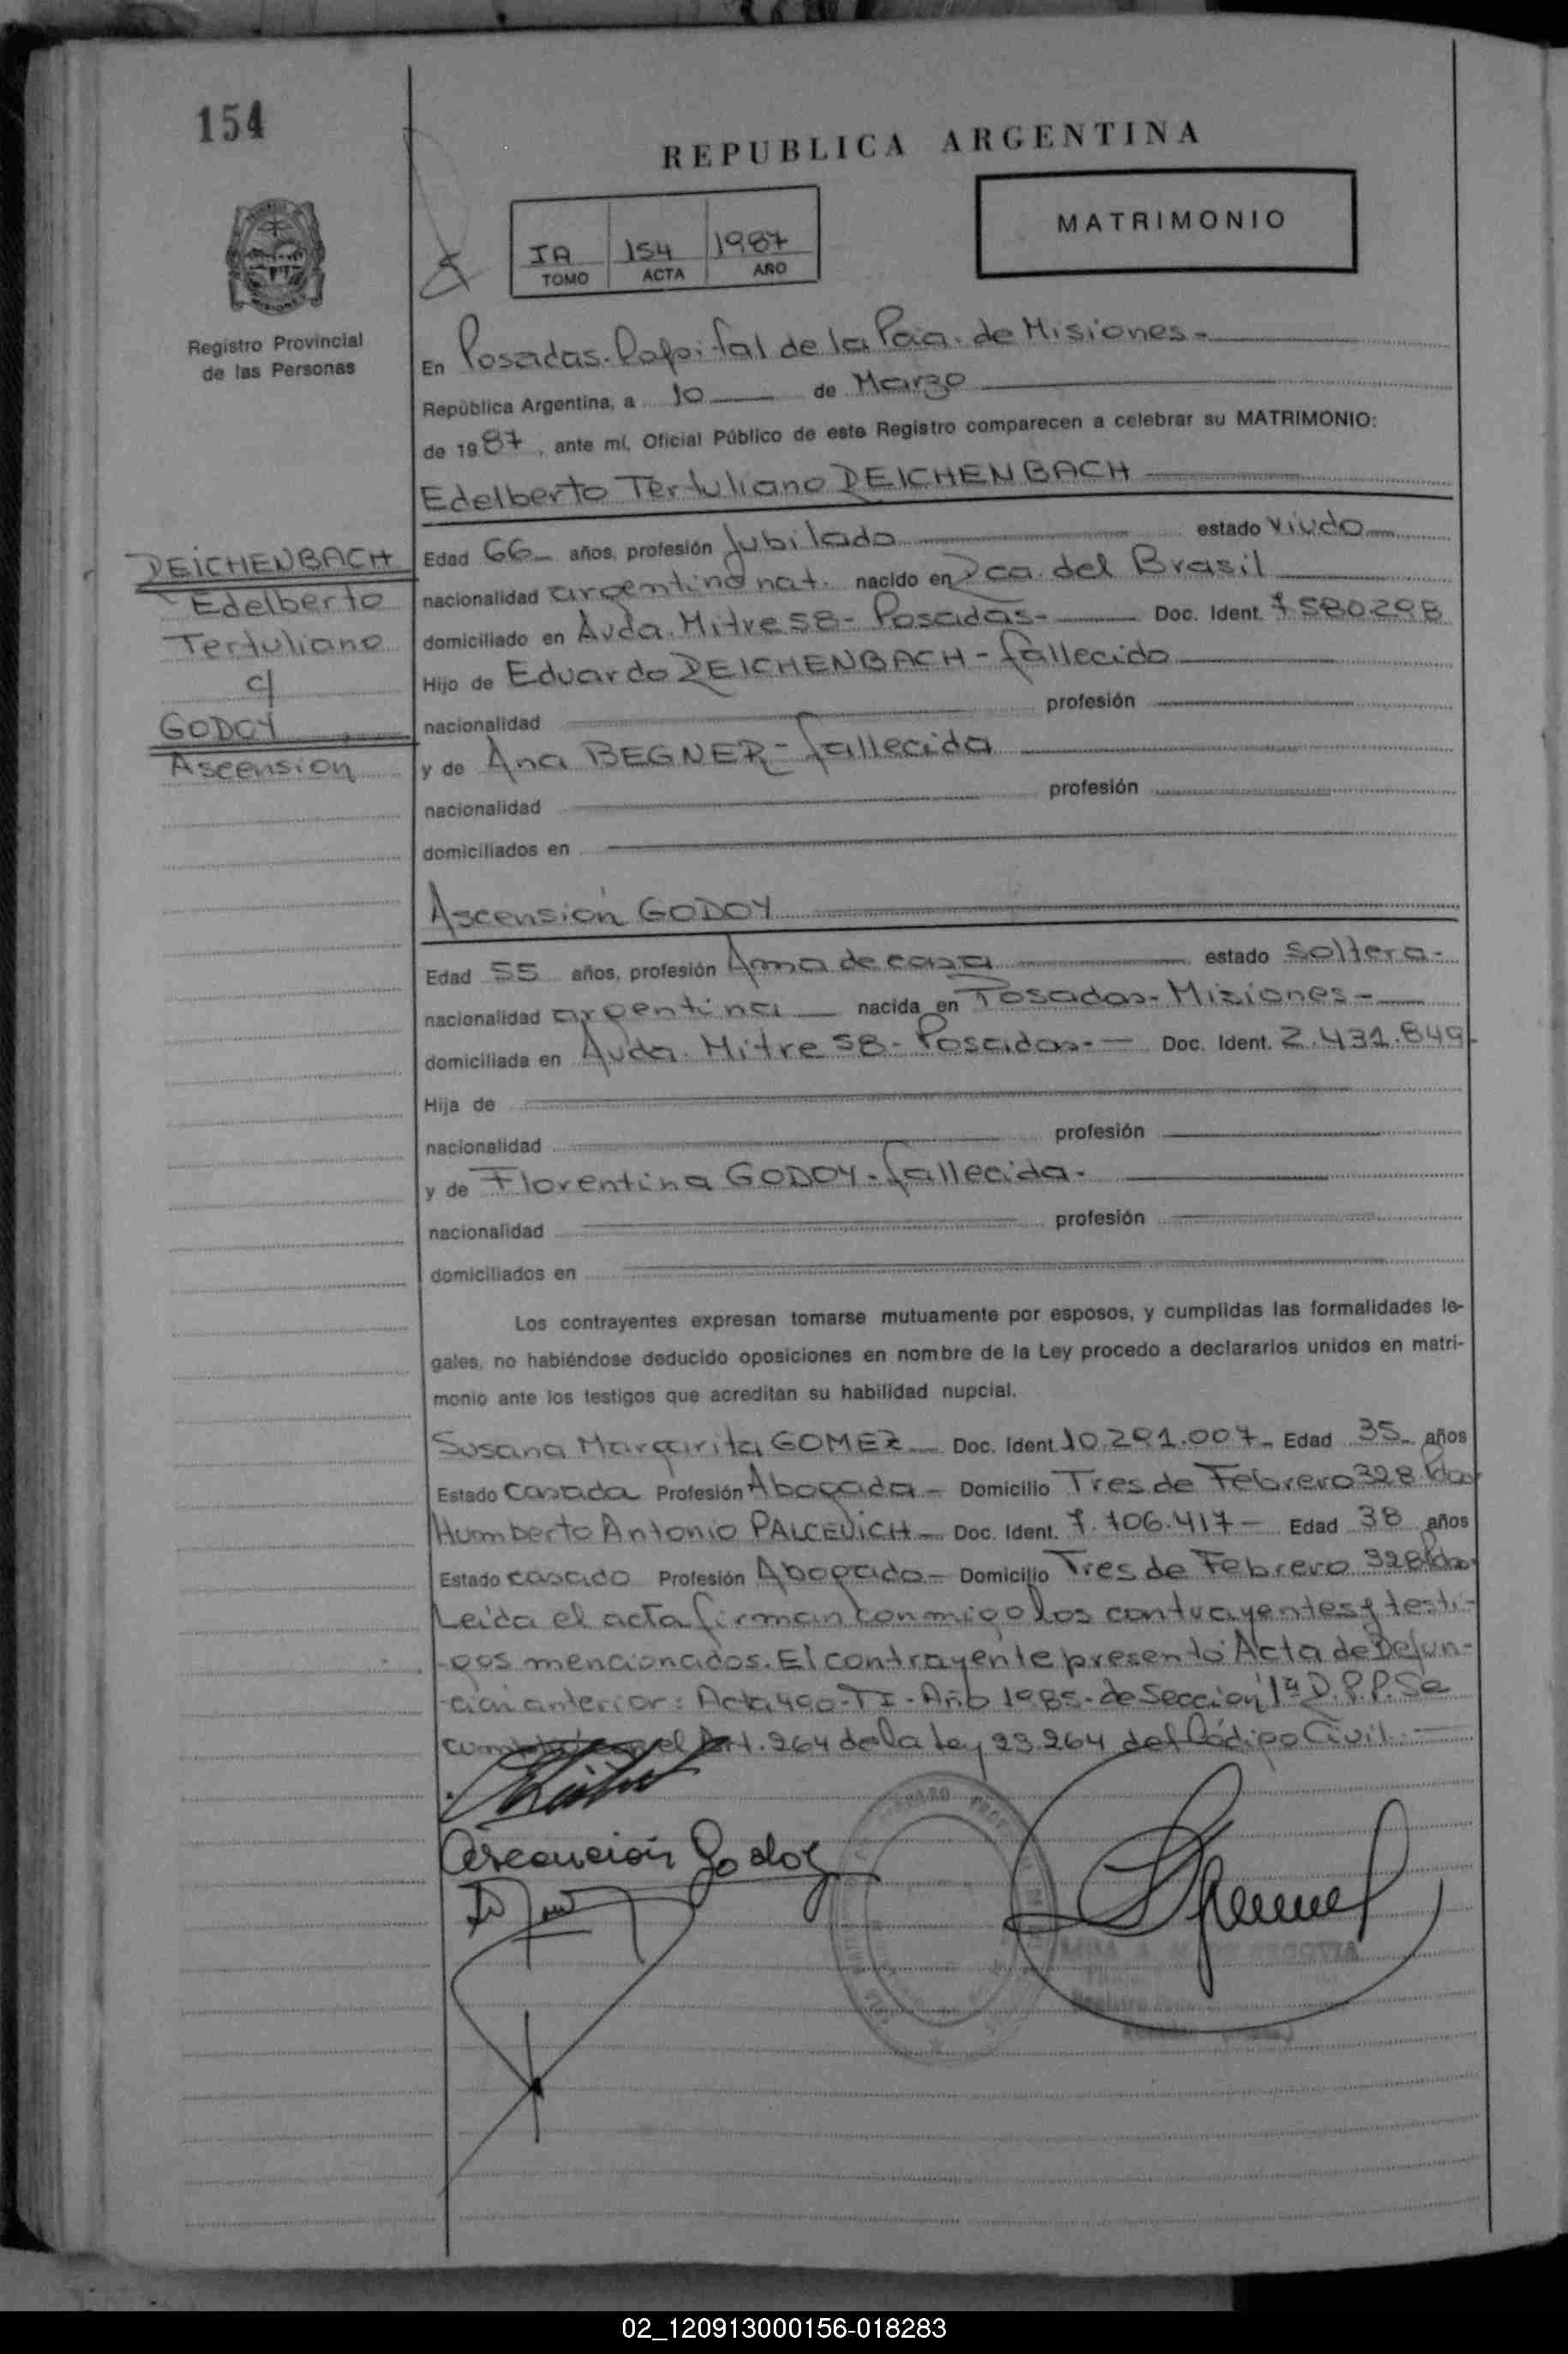 154
REPUBLICA ARGENTINA
MATRIMONIO
IA 154 1987
TOMO ACTA AÑO
Registro Provincial
de las Personas
En Posadas. Capital de la Pcia. de Misiones-
República Argentina, a 10 de Marzo
de 1987, ante mí, Oficial Público de este Registro comparecen a celebrar su MATRIMONIO:
Edelberto Tertuliano DEICHENBACH
DEICHENBACH
Edelberto
Tertuliano
c/
GODOY
Ascension
Edad 66 años, profesión Jubilado estado viudo
nacionalidad argentino nat. nacido en Rca. del Brasil
domiciliado en Avda. Mitre 58- Posadas- Doc. Ident. 7.580.298
Hijo de Eduardo DEICHENBACH - fallecido
nacionalidad profesión
y de Ana BEGNER- fallecida
nacionalidad profesión
domiciliados en
Ascensión GODOY
Edad 55 años, profesión Ama de casa estado soltera-
nacionalidad argentina nacida en Posadas- Misiones-
domiciliada en Avda. Mitre 58- Posadas- Doc. Ident. 2.431.849
Hija de
nacionalidad profesión
y de Florentina GODOY- fallecida-
nacionalidad profesión
domiciliados en
Los contrayentes expresan tomarse mutuamente por esposos, y cumplidas las formalidades le-
gales, no habiéndose deducido oposiciones en nombre de la Ley procedo a declararlos unidos en matri-
monio ante los testigos que acreditan su habilidad nupcial.
Susana Margarita GOMEZ Doc. Ident. 10.291.007 Edad 35 años
Estado casada Profesión Abogada- Domicilio Tres de Febrero 328 Pdas
Humberto Antonio PALCEVICH Doc. Ident. 7.706.417 Edad 38 años
Estado casado Profesión Abogado- Domicilio Tres de Febrero 328 Pdas
Leída el acta firman conmigo los contrayentes y testi-
gos mencionados. El contrayente presentó Acta de Defun-
ción anterior: Acta 490-TI-Año 1985- de Sección 1ª D.P.P. Se
el Art. 264 de la Ley 23.264 del Código Civil.
Ascención Godoy
02_120913000156-018283